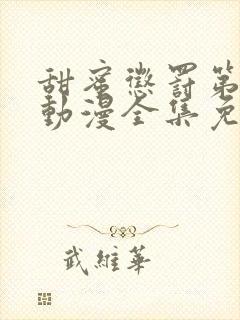 甜蜜懲罰第
動漫全集免
武維華